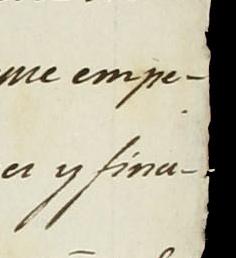 que empe-
er y fina-